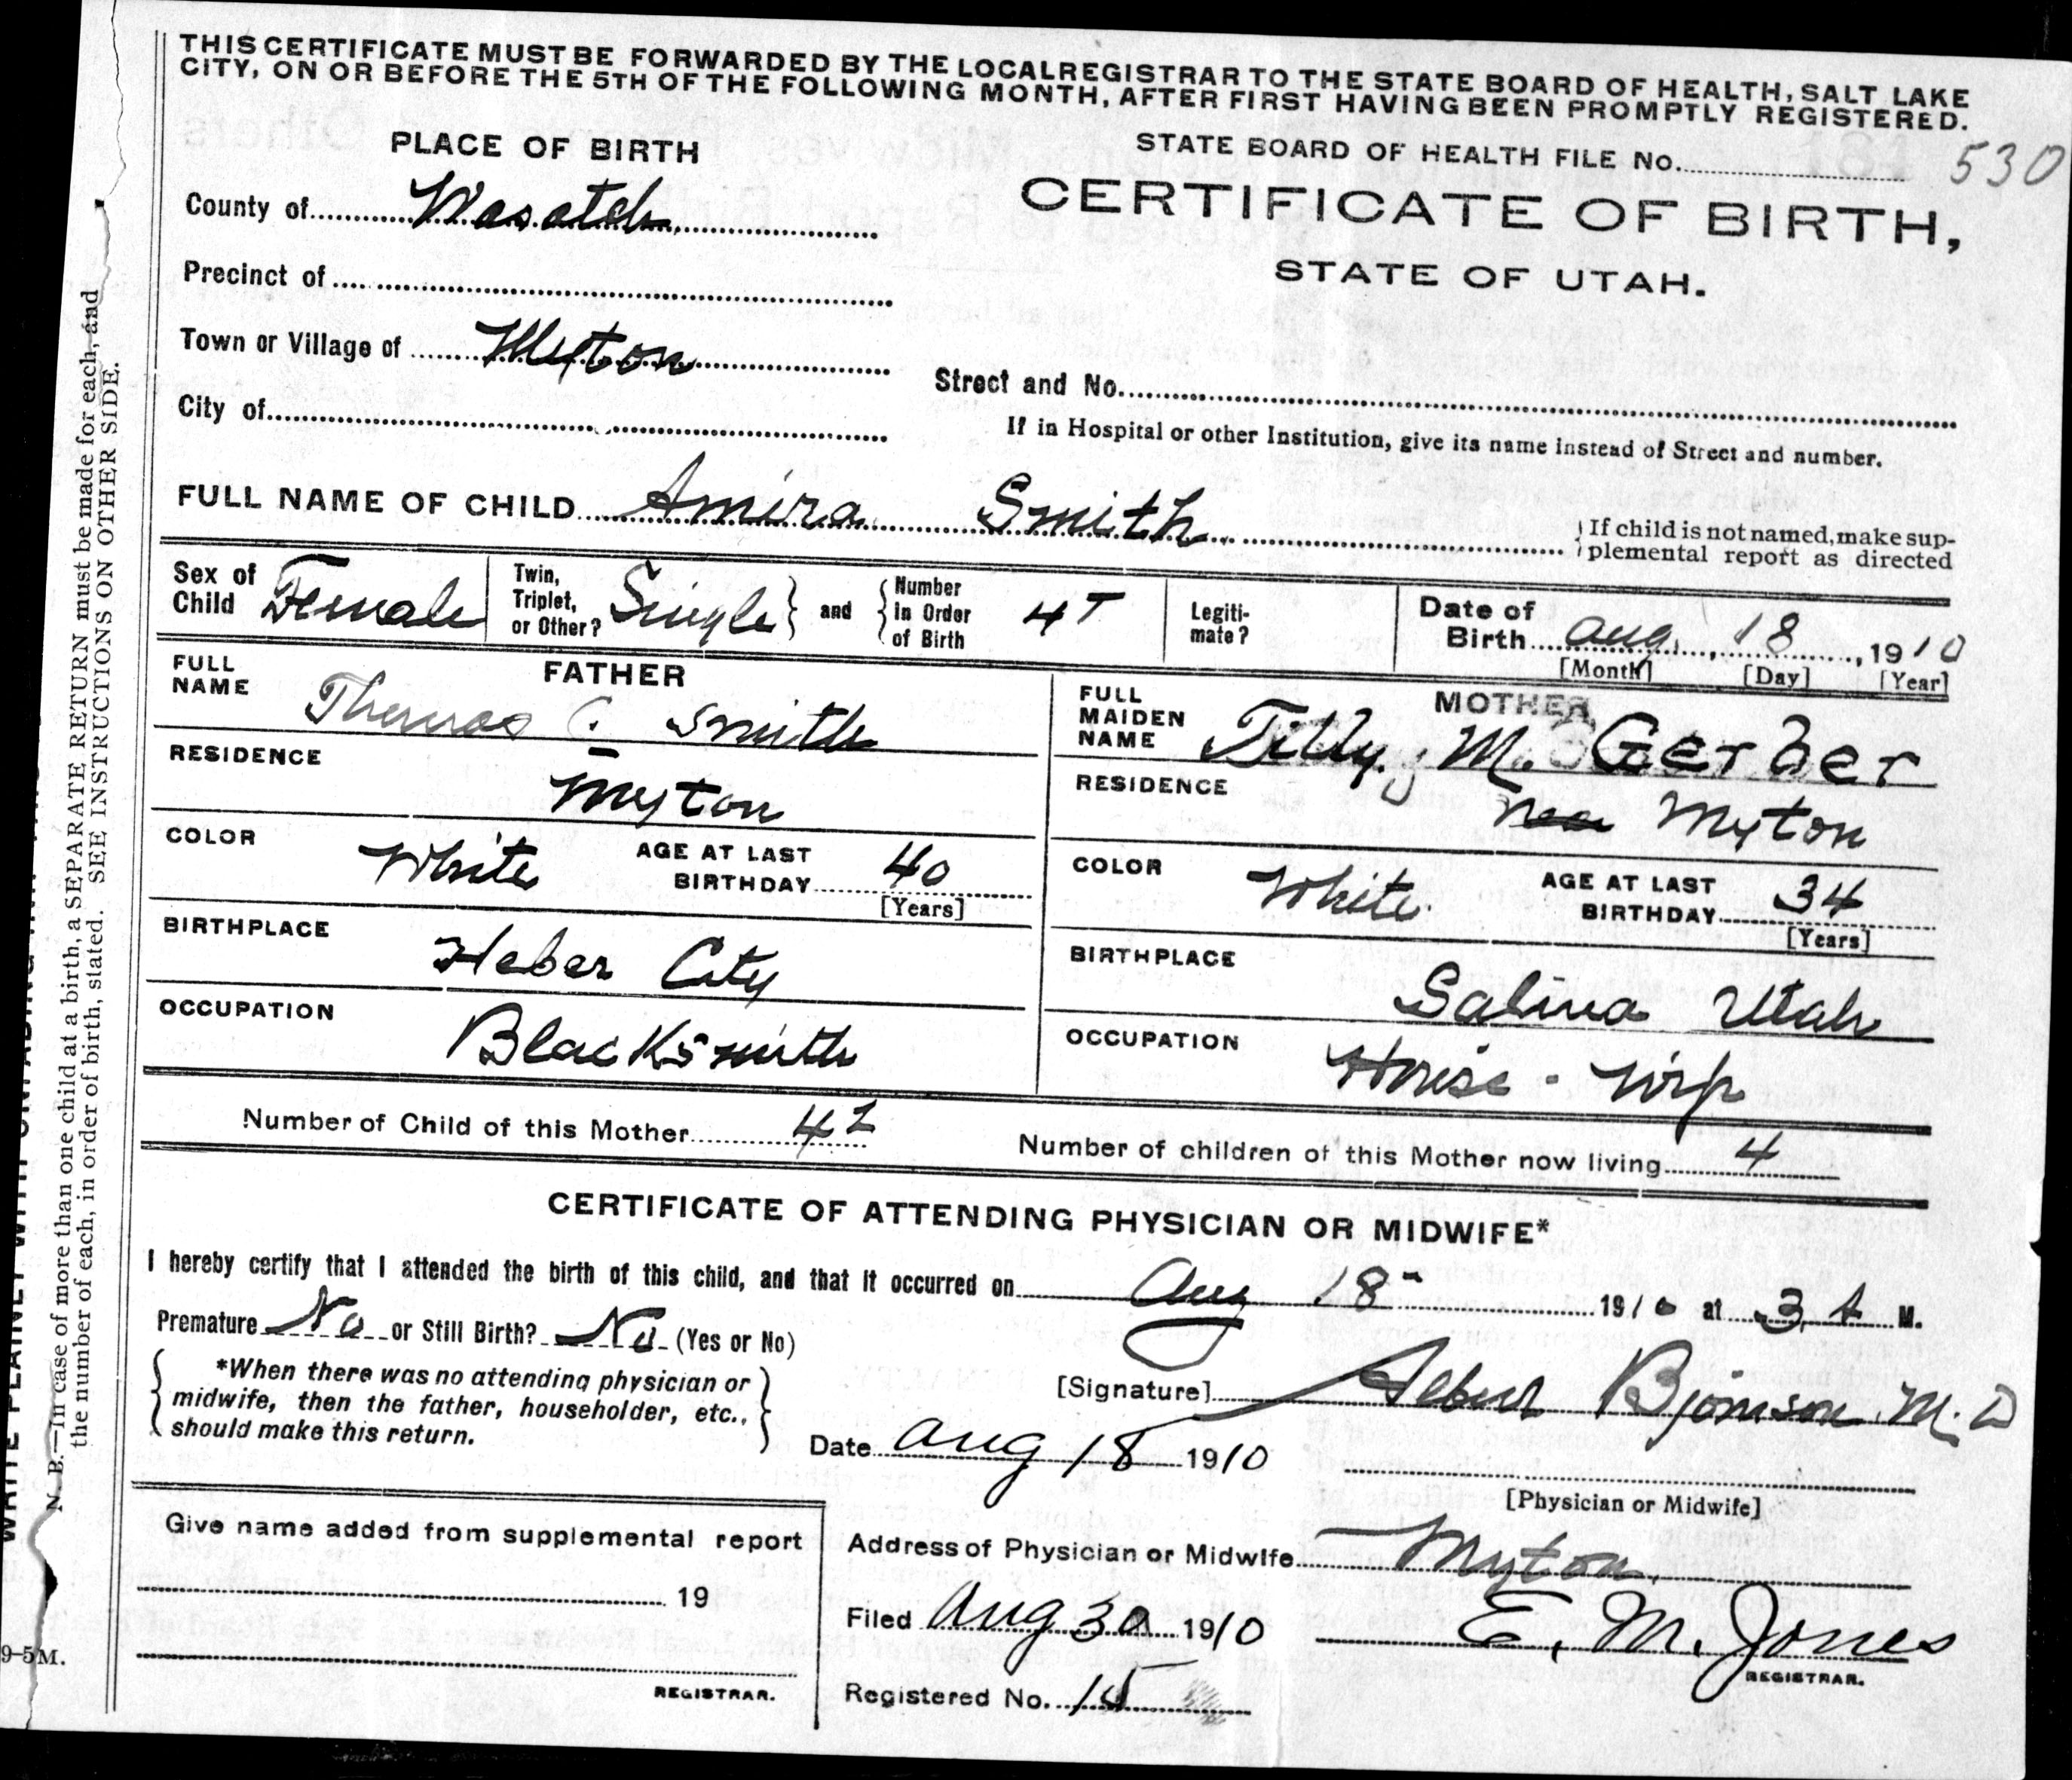 THIS CERTIFICATE MUST BE FORWARDED BY THE LOCAL REGISTRAR TO THE STATE BOARD OF HEALTH, SALT LAKE
CITY, ON OR BEFORE THE 5TH OF THE FOLLOWING MONTH, AFTER FIRST HAVING BEEN PROMPTLY REGISTERED.
PLACE OF BIRTH
STATE BOARD OF HEALTH FILE No. 530
County of Wasatch
CERTIFICATE OF BIRTH,
Precinct of
STATE OF UTAH.
Town or Village of Myton
Street and No.
City of
If in Hospital or other Institution, give its name instead of Street and number.
FULL NAME OF CHILD Amira Smith
If child is not named, make sup-
plemental report as directed
Sex of Child Female
Twin, Triplet, or Other? Single and Number in Order of Birth 4
Legiti-mate?
Date of Birth Aug. 18, 1910
[Month] [Day] [Year]
FATHER
FULL NAME Thomas C. Smith
RESIDENCE Myton
COLOR White AGE AT LAST BIRTHDAY 40
[Years]
BIRTHPLACE Heber City
OCCUPATION Blacksmith
MOTHER
FULL MAIDEN NAME Tilly M. Gerber
RESIDENCE Near Myton
COLOR White AGE AT LAST BIRTHDAY 34
[Years]
BIRTHPLACE Salina Utah
OCCUPATION House-Wif
Number of Child of this Mother 4
Number of children of this Mother now living 4
CERTIFICATE OF ATTENDING PHYSICIAN OR MIDWIFE*
I hereby certify that I attended the birth of this child, and that it occurred on Aug 18 1910 at 3 A M.
Premature No or Still Birth? No (Yes or No)
*When there was no attending physician or
midwife, then the father, householder, etc.,
should make this return.
[Signature] Bjornson M.D
Date Aug 18 1910
[Physician or Midwife]
Give name added from supplemental report
19
REGISTRAR.
Address of Physician or Midwife Myton.
Filed Aug 30 1910 E. M. Jones
REGISTRAR.
Registered No. 15
N. B.—In case of more than one child at a birth, a SEPARATE RETURN must be made for each, and
the number of each, in order of birth, stated. SEE INSTRUCTIONS ON OTHER SIDE.
9-5M.